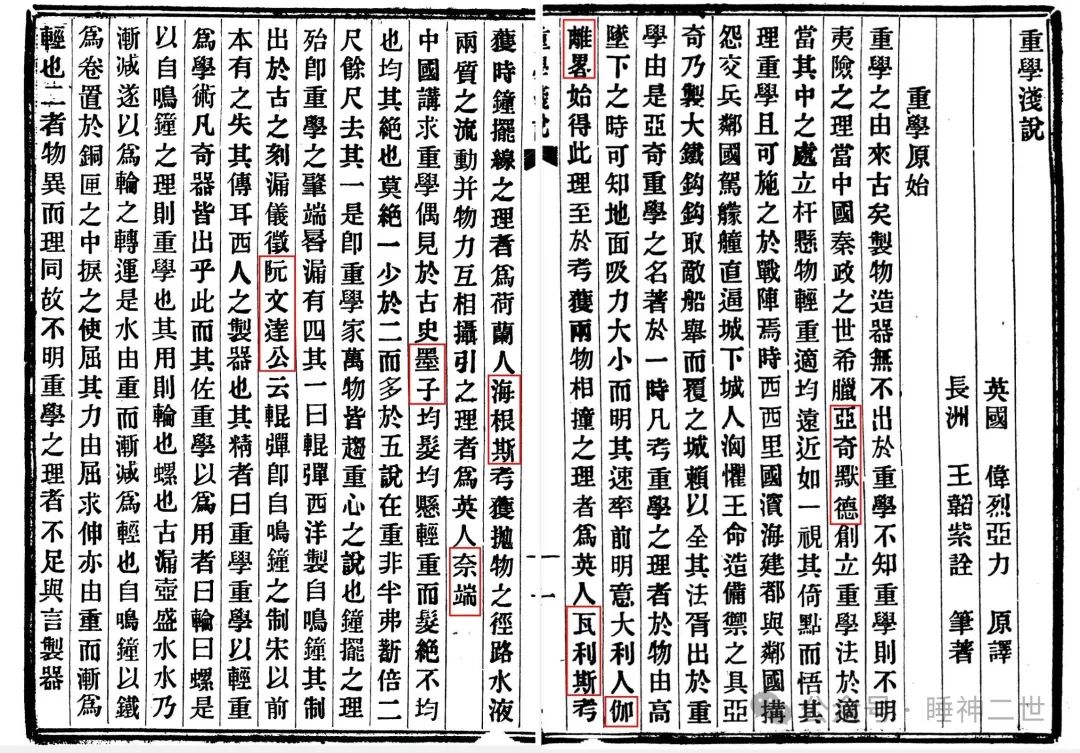 重學淺說
英國 偉烈亞力 原譯
長洲 王韜紫詮 筆著
重學原始
重學之由來古矣製物造器無不出於重學不知重學則不明
夷險之理當中國秦政之世希臘亞奇默德創立重學法於適
當其中之處立杆懸物輕重適均遠近如一視其倚點而悟其
理重學且可施之於戰陣焉時西西里國濱海建都與鄰國搆
怨交兵鄰國駕艨艟直逼城下城人洶懼王命造備禦之具亞
奇乃製大鐵鈎鈎取敵船舉而覆之城賴以全其法胥出於重
學由是亞奇重學之名著於一時凡考重學之理者於物由高
墜下之時可知地面吸力大小而明其速率前明意大利人伽
離畧始得此理至於考獲兩物相撞之理者為英人瓦利斯考
獲時鐘擺線之理者為荷蘭人海根斯考獲拋物之徑路水液
兩質之流動并物力互相攝引之理者為英人奈端
中國講求重學偶見於古史墨子均髮均懸輕重而髮絕不均
也均其絕也莫絕一少於二而多於五說在重非半弗斱倍二
尺餘尺去其一是卽重學家萬物皆趨重心之說也鐘擺之理
殆卽重學之肇端晷漏有四其一曰輥彈西洋製自鳴鐘其制
出於古之刻漏儀徵阮文達公云輥彈卽自鳴鐘之制宋以前
本有之失其傳耳西人之製器也其精者曰重學重學以輕重
為學術凡奇器皆出乎此而其佐重學以為用者曰輪曰螺是
以自鳴鐘之理則重學也其用則輪也螺也古漏壺盛水水乃
漸減遂以為輪之轉運是水由重而漸減為輕也自鳴鐘以鐵
為卷置於銅匣之中捩之使屈其力由屈求伸亦由重而漸為
輕也二者物異而理同故不明重學之理者不足與言製器
公众号 · 睡神二世